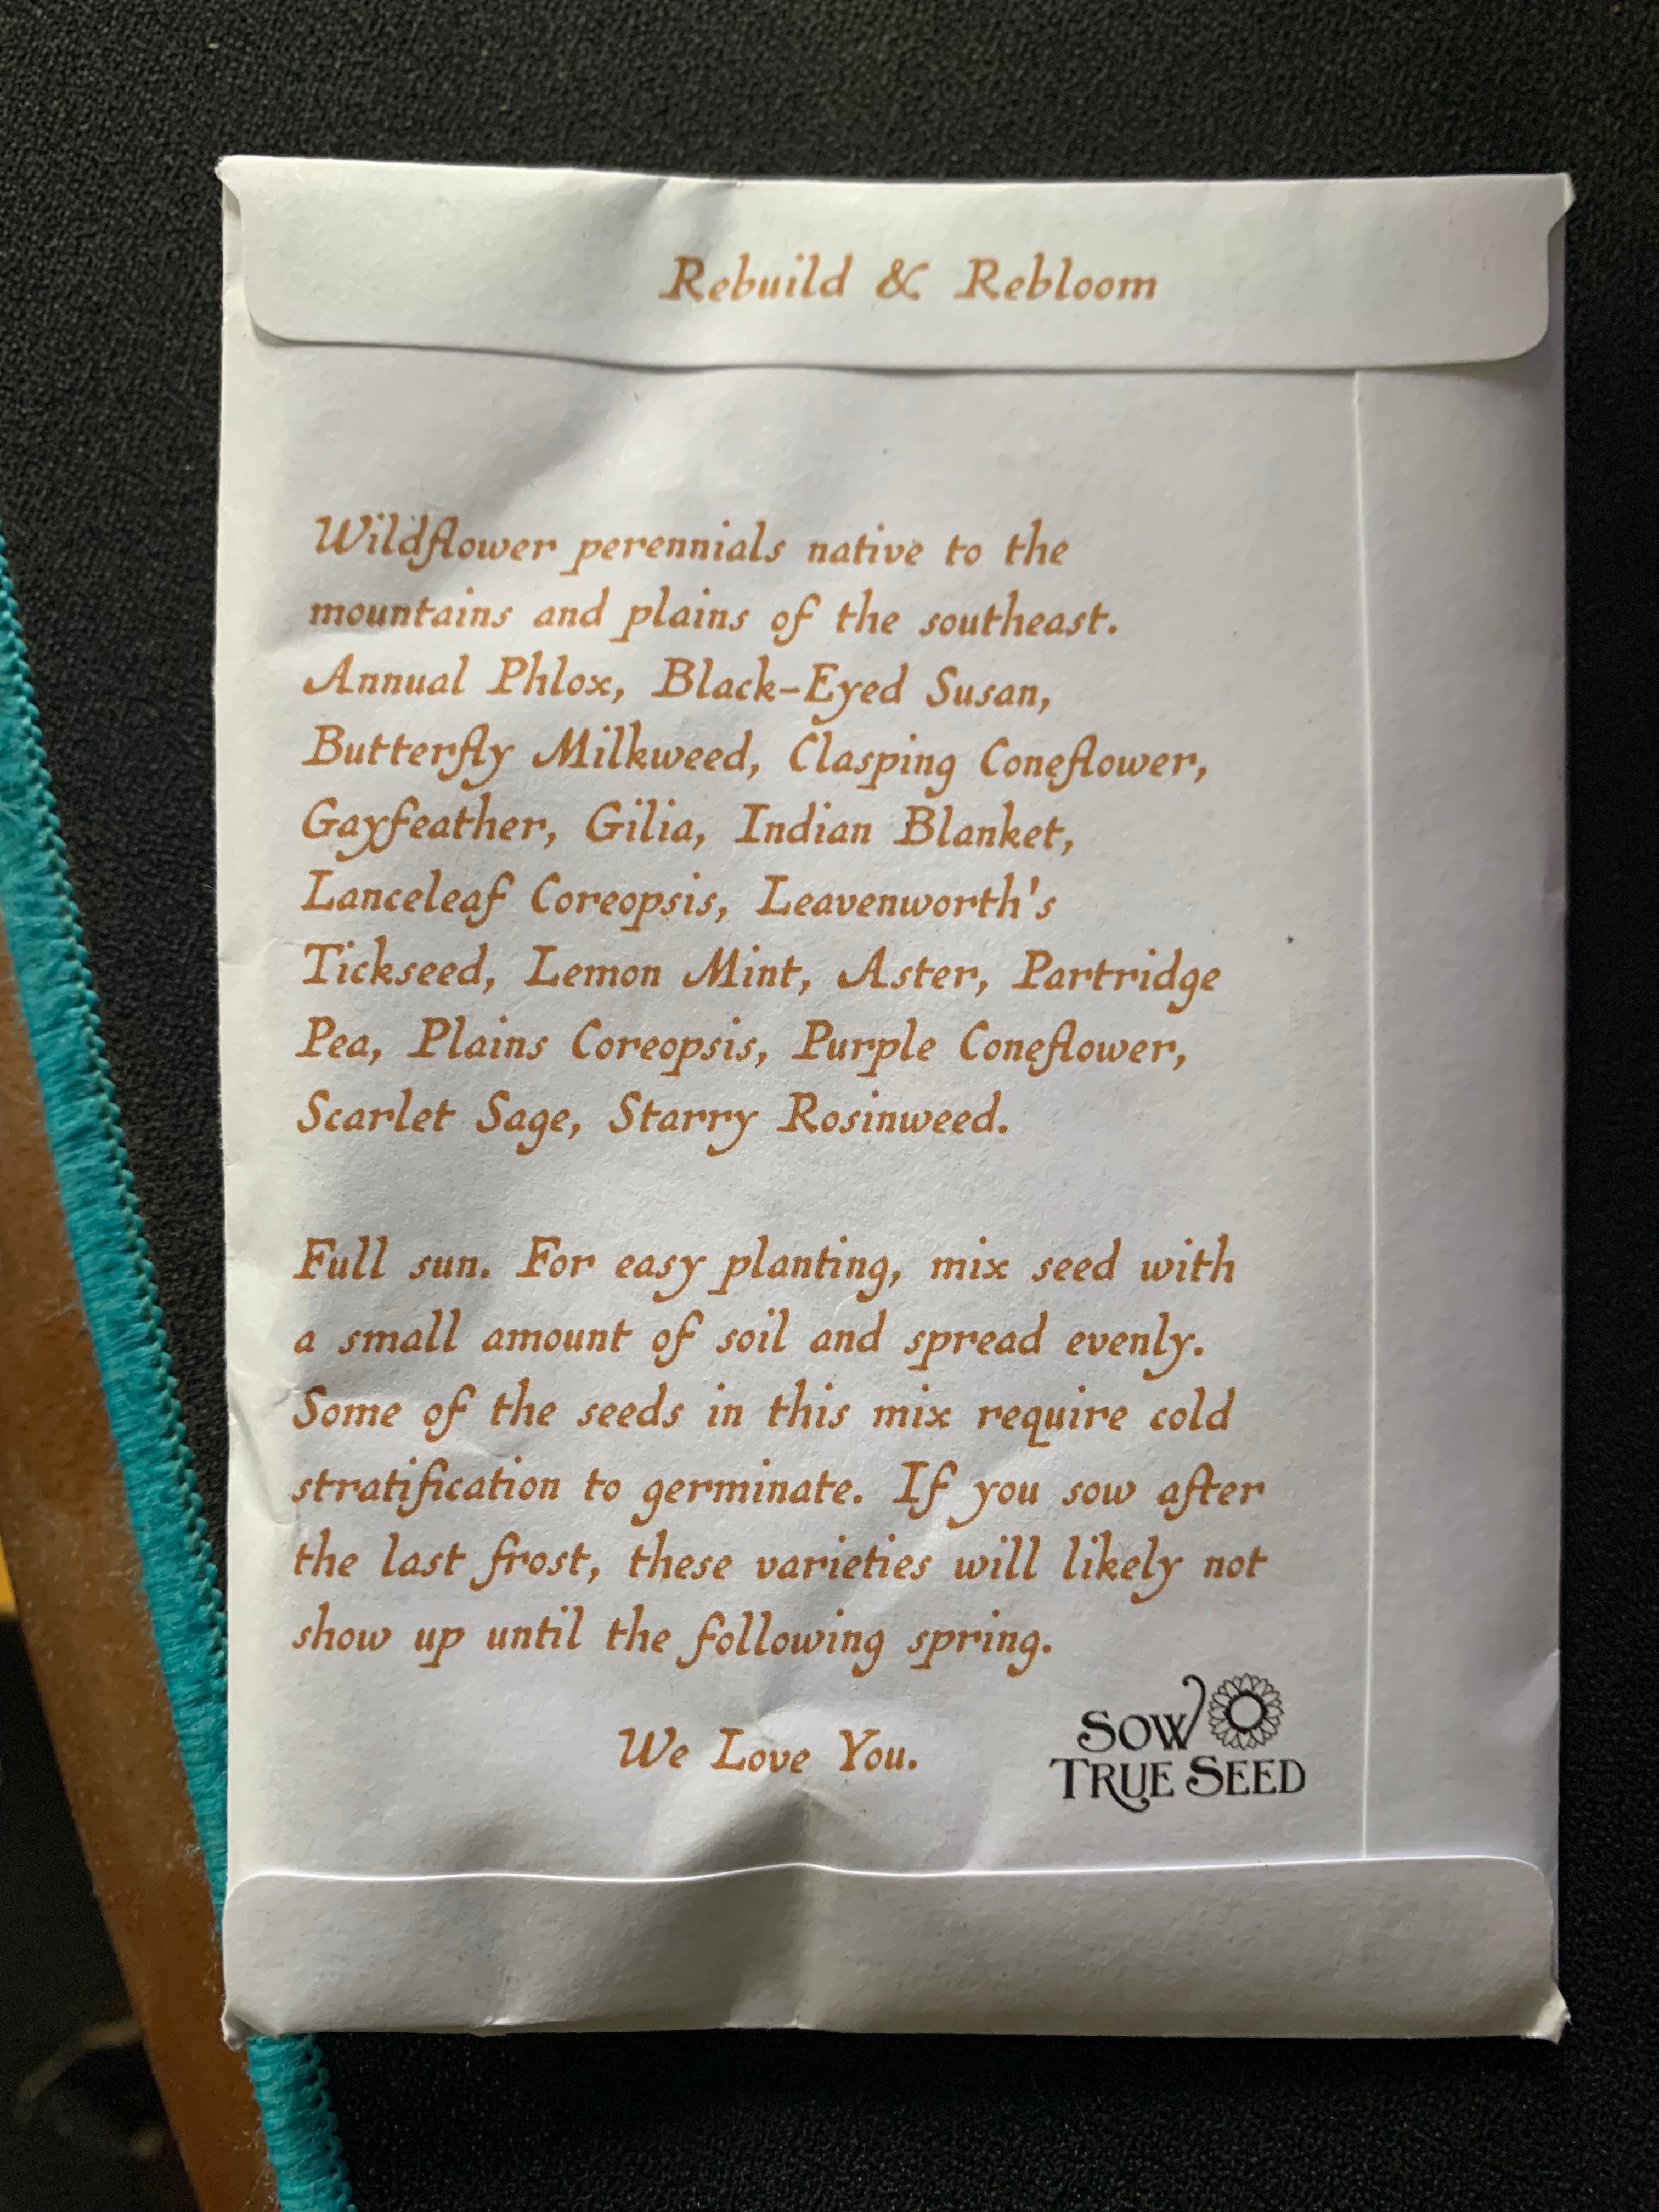 Rebuild & Rebloom
Wildflower perennials native to the
mountains and plains of the southeast.
Annual Phlox, Black-Eyed Susan,
Butterfly Milkweed, Clasping Coneflower,
Gayfeather, Gilia, Indian Blanket,
Lanceleaf Coreopsis, Leavenworth's
Tickseed, Lemon Mint, Aster, Partridge
Pea, Plains Coreopsis, Purple Coneflower,
Scarlet Sage, Starry Rosinweed.
Full sun. For easy planting, mix seed with
a small amount of soil and spread evenly.
Some of the seeds in this mix require cold
stratification to germinate. If you sow after
the last frost, these varieties will likely not
show up until the following spring.
We Love You.
SOW
TRUE SEED